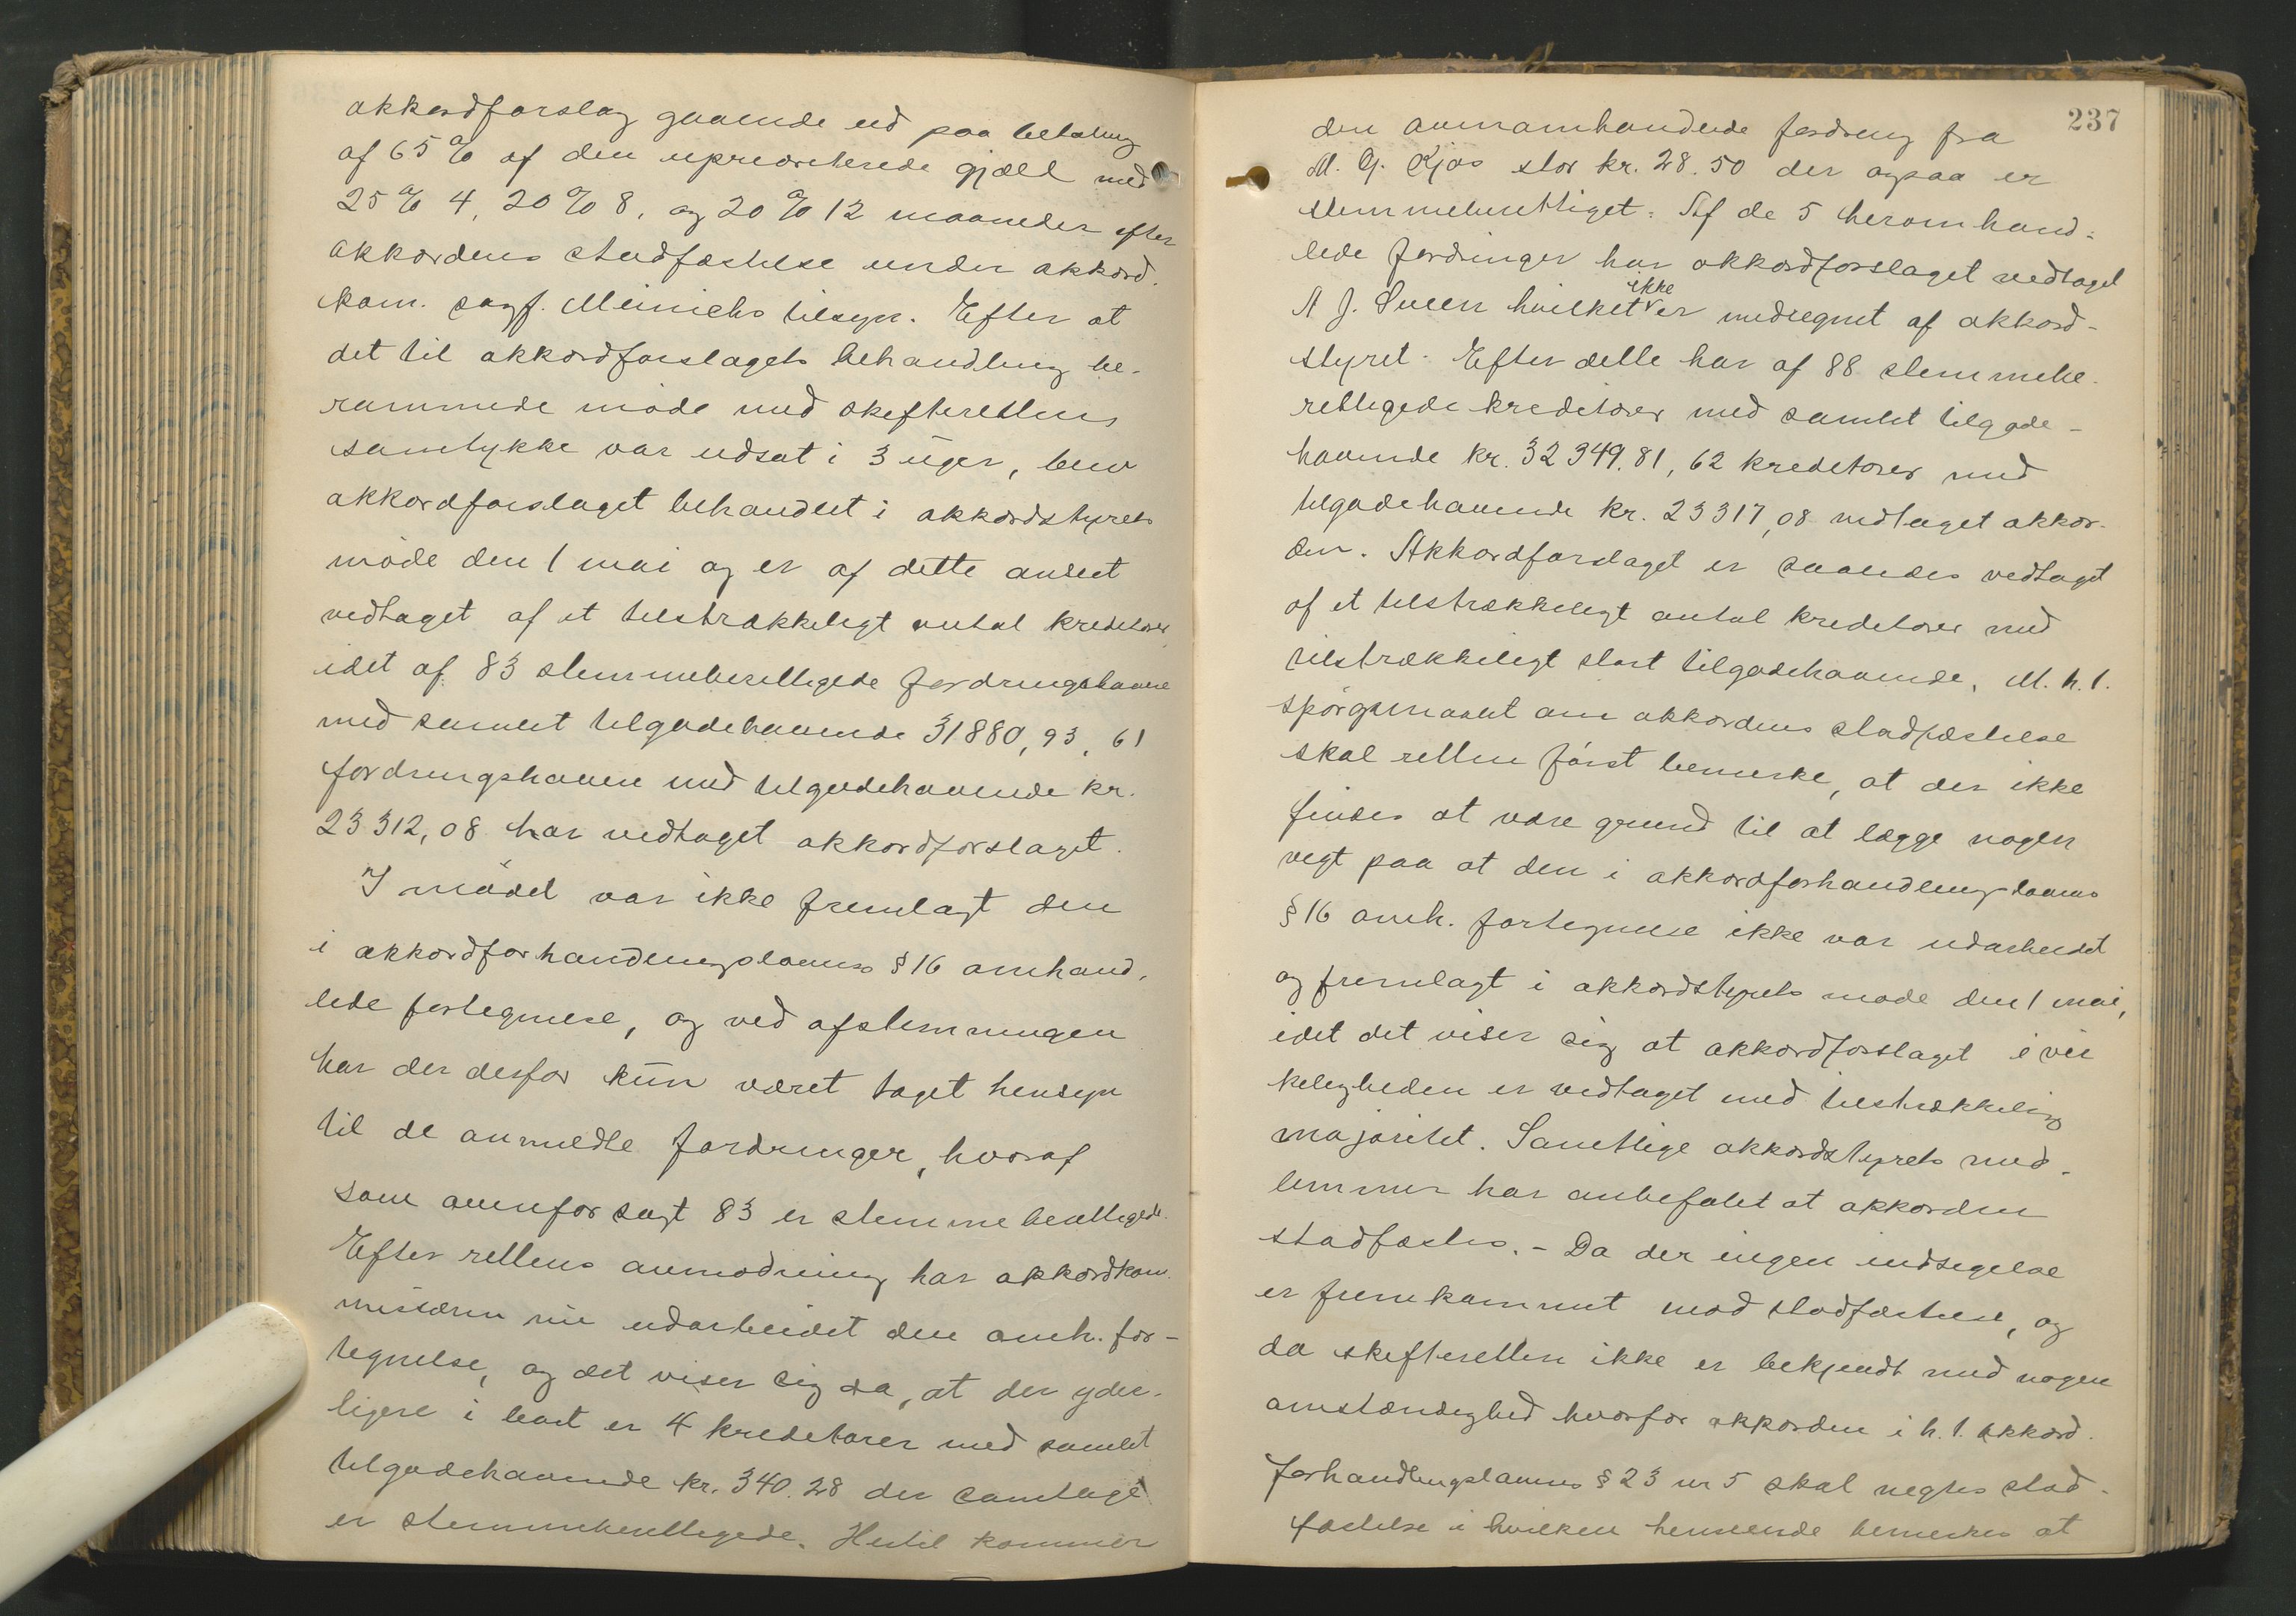 akkordforslag gaaende ud paa betaling
af 65 % af den uprioriterede gjæld med
25 % 4, 20 % 8, og 20 % 12 maaneder efter
akkordens stadfæstelse under akkord.
kom. sagf. Meinichs tilsyn. Efter at
det til akkordforslagets behandling be-
rammede møde med skifterettens
samtykke var udsat i 3 uger, blev
akkordforslaget behandlet i akkordstyrets
møde den 1 mai og er af dette anseet
vedtaget af et tilstrækkeligt antal kreditorer,
idet af 83 stemmeberettigede fordringshavere
med samlet tilgodehavende 31880,93, 61
fordringshavere med tilgodehavende kr.
23312,08 har vedtaget akkordforslaget.
I mødet var ikke fremlagt den
i akkordforhandlingslovens § 16 omhand-
lede fortegnelse, og ved afstemningen
har der derfor kun været taget hensyn
til de anmeldte fordringer, hvoraf
som ovenfor sagt 83 er stemmeberettigede.
Efter rettens anmodning har akkordkom-
missæren nu udarbeidet den omh. for-
tegnelse, og det viser sig da, at der yder-
ligere i boet er 4 kreditorer med samlet
tilgodehavende kr. 340.28 der samtlige
er stemmeberettigede. Hertil kommer
237
den ovenomhandlede fordring fra
M. G. Kjøs stor kr. 28.50 der ogsaa er
stemmeberettiget. Af de 5 heromhand-
lede fordringer har akkordforslaget vedtaget
A J. Sveen hvilket ikke er medregnet af akkord-
styret. Efter dette har af 88 stemmebe-
rettigede kreditorer med samlet tilgode-
havende kr. 32349.81, 62 kreditorer med
tilgodehavende kr. 23317,08 vedtaget akkor-
den. Akkordforslaget er saaledes vedtaget
af et tilstrækkeligt antal kreditorer med
tilstrækkeligt stort tilgodehavende. M. h. t.
spørgsmaalet om akkordens stadfæstelse
skal retten først bemerke, at der ikke
findes at være grund til at lægge nogen
vegt paa at den i akkordforhandlingslovens
§ 16 omh. fortegnelse ikke var udarbeidet
og fremlagt i akkordstyrets møde den 1 mai,
idet det viser sig at akkordforslaget i vir
keligheden er vedtaget med tilstrækkelig
majoritet. Samtlige akkordstyrets med-
lemmer har anbefalet at akkorden
stadfæstes. - Da der ingen indsigelse
er fremkommet mod stadfæstelse, og
da skifteretten ikke er bekjendt med nogen
omstændighed hvorfor akkorden i h. t. akkord-
forhandlingslovens § 23 nr 5 skal negtes stad-
fæstelse i hvilken henseende bemerkes at